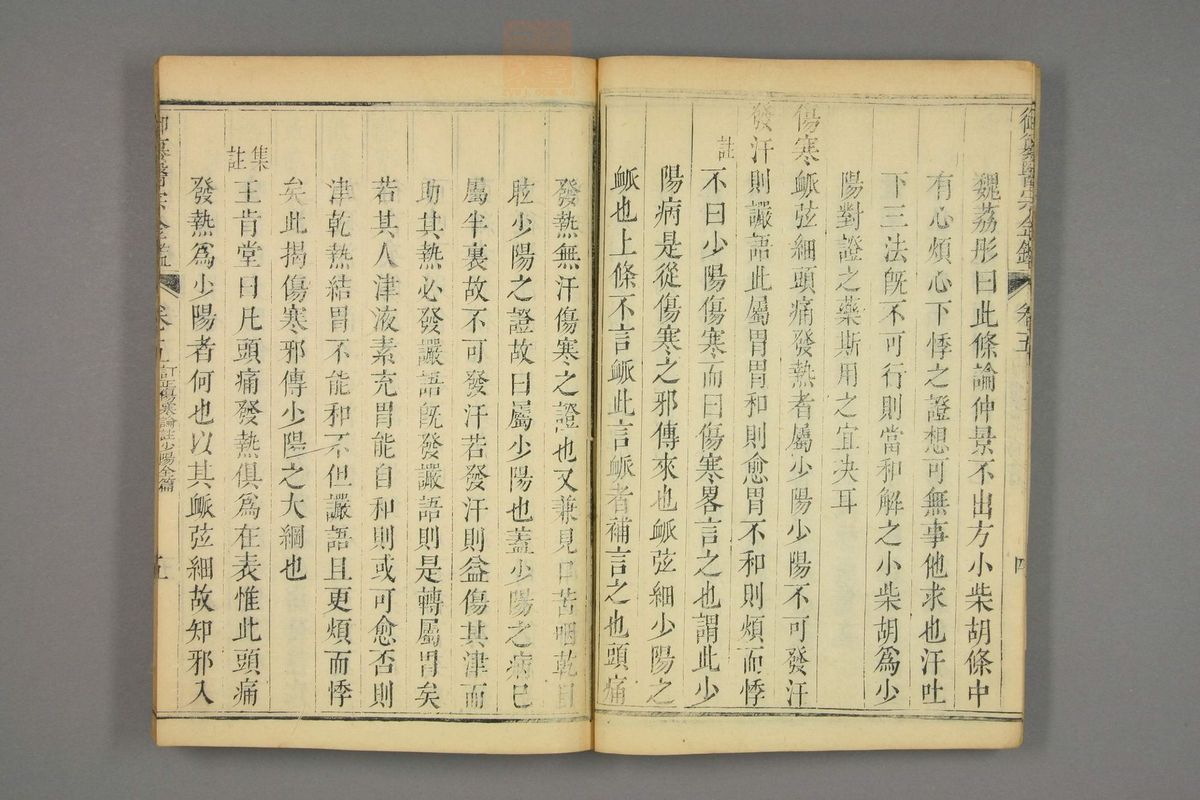 御纂醫宗金鑑 卷五 四
魏荔彤曰此條論仲景不出方小柴胡條中
有心煩心下悸之證想可無事他求也汗吐
下三法旣不可行則當和解之小柴胡爲少
陽對證之藥斯用之宜決耳
傷寒脈弦細頭痛發熱者屬少陽少陽不可發汗
發汗則讝語此屬胃胃和則愈胃不和則煩而悸
註不曰少陽傷寒而曰傷寒畧言之也謂此少
陽病是從傷寒之邪傳來也脈弦細少陽之
脈也上條不言脈此言脈者補言之也頭痛
發熱無汗傷寒之證也又兼見口苦咽乾目
眩少陽之證故曰屬少陽也蓋少陽之病已
屬半裏故不可發汗若發汗則益傷其津而
助其熱必發讝語旣發讝語則是轉屬胃矣
若其人津液素充胃能自和則或可愈否則
津乾熱結胃不能和不但讝語且更煩而悸
矣此揭傷寒邪傳少陽之大綱也
集註王肯堂曰凡頭痛發熱俱爲在表惟此頭痛
發熱爲少陽者何也以其脈弦細故知邪入
御纂醫宗金鑑 卷五 訂正傷寒論註少陽全篇 五